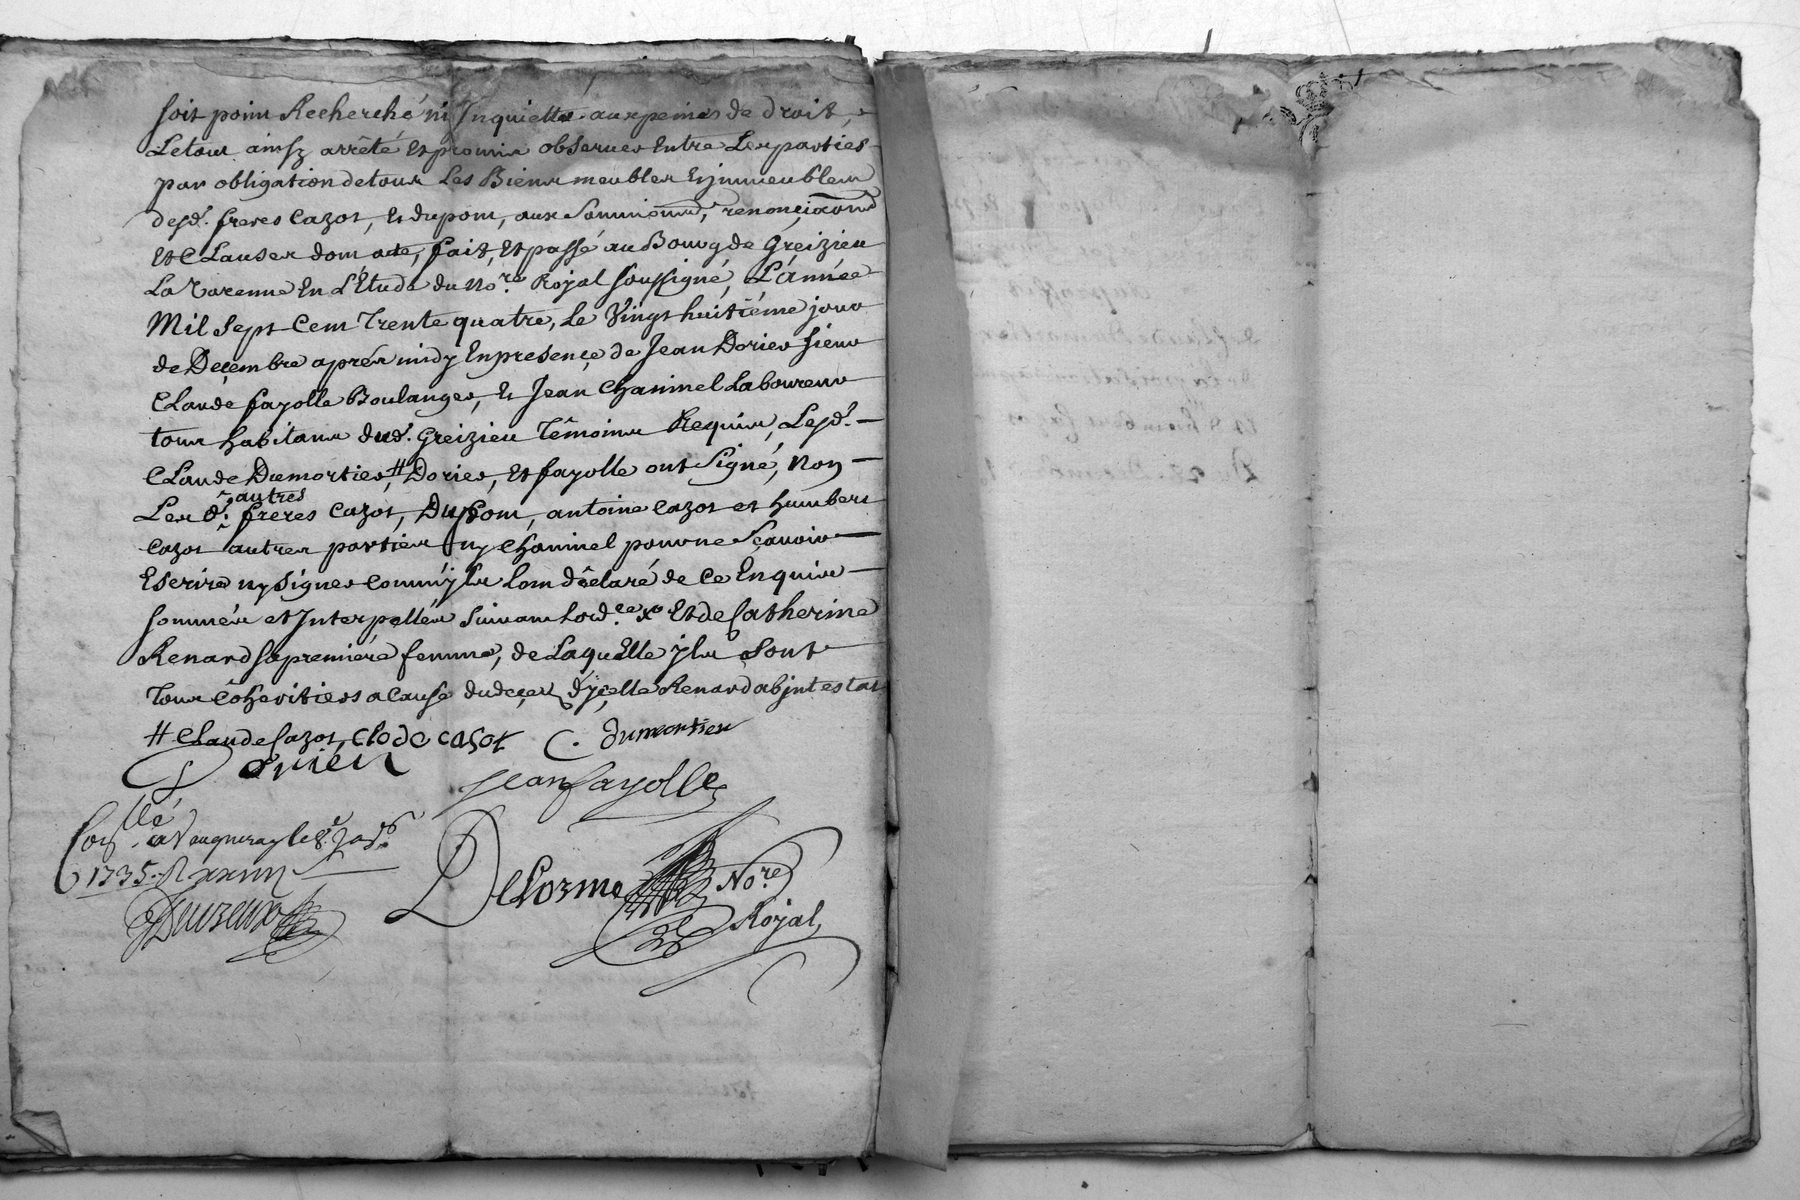 soit point Recherché ni Inquietté aux peines de droit,
Le tout ainsy arrêté Et promis observer Entre Les parties
par obligation de tous Les Biens meubles Et jmmeubles
desd. freres Cazot, Et dupont, aux Soumions, renonçiaons
Et Clauses dont acte, fait, Et passé au Bourg de Greizieu
La Varenne En L'Etude du No.re Royal soussigné, L'année
Mil sept Cent Trente quatre, Le Vingt huitiéme jour
de Deçembre aprés midy En presençe de Jean Dorier sieur
Claude fayolle Boulanger, Et Jean Chaninel Laboureur
tous habitans dud. Greizieu Têmoins Requis, Lesd.
Claude Dumortier, # Dorier, Et fayolle ont Signé, Non
Les d. autres freres Cazot, Dupont, antoine Cazot et humbert
Cazot autres parties ny Chaninel pour ne Sçavoir
Escrire ny Signer comm'jls lont déclaré de Ce Enquis
sommés et Interpellés Suivant Lord.ce x° Et de Catherine
Renard sa premiére femme, de Laquelle jls Sont
Tous Cohéritiers a Cause du deçes d'jçelle Renard abjntestat
# Claude Cazot, clode casot C. dumortier
Dorier
Jean fayolle
Con.llé a Vaugneray le 8.e
1735. R
Delorme No.re
Royal